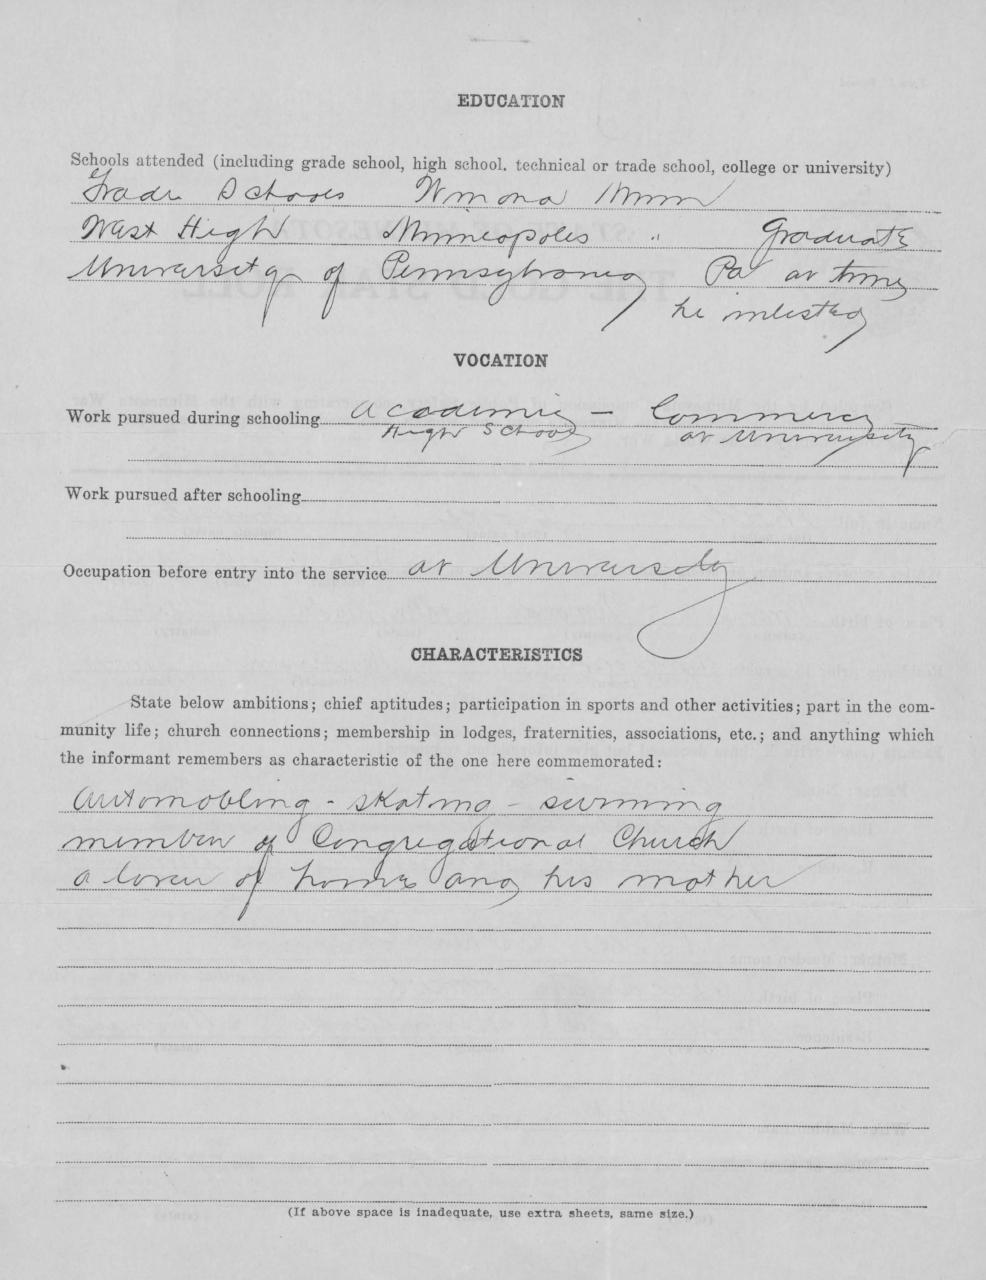 EDUCATION
Schools attended (including grade school, high school. technical or trade school, college or university)
Grade Schools Winona Minn
West High Minneapoles " Graduate
University of Pennsylvania Pa at time
he inlested
VOCATION
Work pursued during schooling Academic – Commerce
High School at University
Work pursued after schooling
Occupation before entry into the service at University
CHARACTERISTICS
State below ambitions; chief aptitudes; participation in sports and other activities; part in the com-
munity life; church connections; membership in lodges, fraternities, associations, etc.; and anything which
the informant remembers as characteristic of the one here commemorated:
Automobling - skating - swimming
member of Congregational Church
a lover of home and his mother
(If above space is inadequate, use extra sheets, same size.)